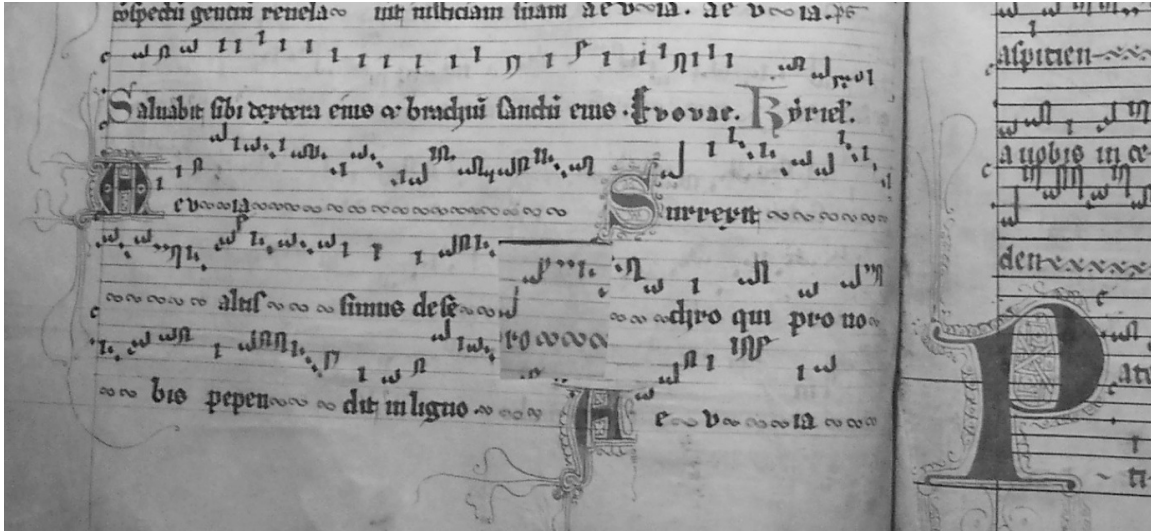 cōspectū genciū reuela uit iusticiam suam ae v ia. ae v ia. ps
Saluabit sibi dextera eius & brachiū sanctū eius. Evovae. Kyriel.
A e v ia Surrexit
altis simus de se chro qui pro no
ro
bis pepen dit in ligno A e v ia
aspicien
a uobis in ce
den
P ate
ti